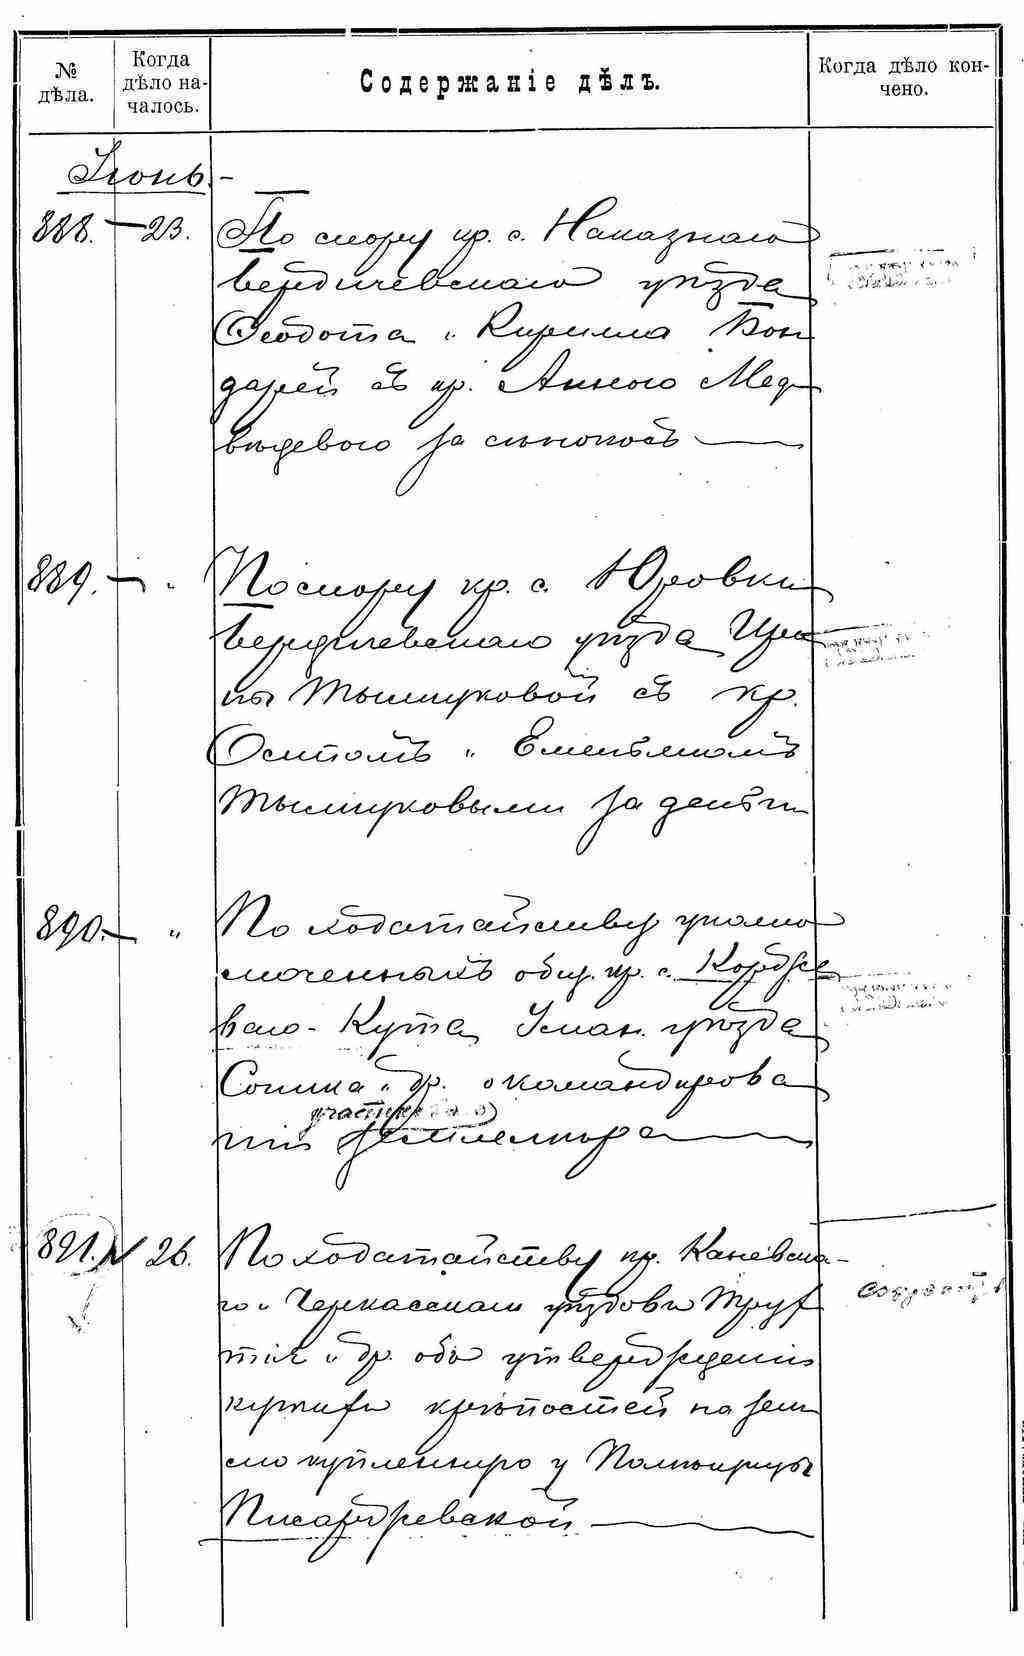 № дѣла.
Когда дѣло на-
чалось.
Содержаніе дѣлъ.
Когда дѣло кон-
чено.
Іюнь.-
888. — 23. По спору кр. с. Наказнаго
Бердичевскаго уѣзда
Ѳеодота и Кирилла Бон
дарей съ кр. Анною Мед-
вѣдевою за сѣнокосъ —
889. — " По спору кр. с. Юровки
Бердичевскаго уѣзда Ири
ны Тышуковой съ кр.
Осипомъ и Емельяномъ
Тышуковыми за деньги
890. — " По ходатайству уполно
моченныхъ общ. кр. с. Корже
ваго-Кута Уман. уѣзда
и др. о командирова
ніи участковаго землемѣра —
891. 26. По ходатайству кр. Каневска-
го и Черкасскаго уѣздовъ
и др. объ утвержденіи
купчихъ крѣпостей на зем
лю купленную у Помѣщицы
Писаржевской —